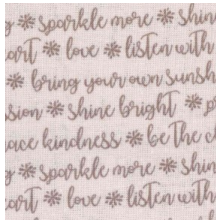 sparkle more * shin
art * love * listen with
* bring your own sunsh
ssion * shine bright * p
ace kindness * be the c
g * sparkle more * shin
art * love * listen with